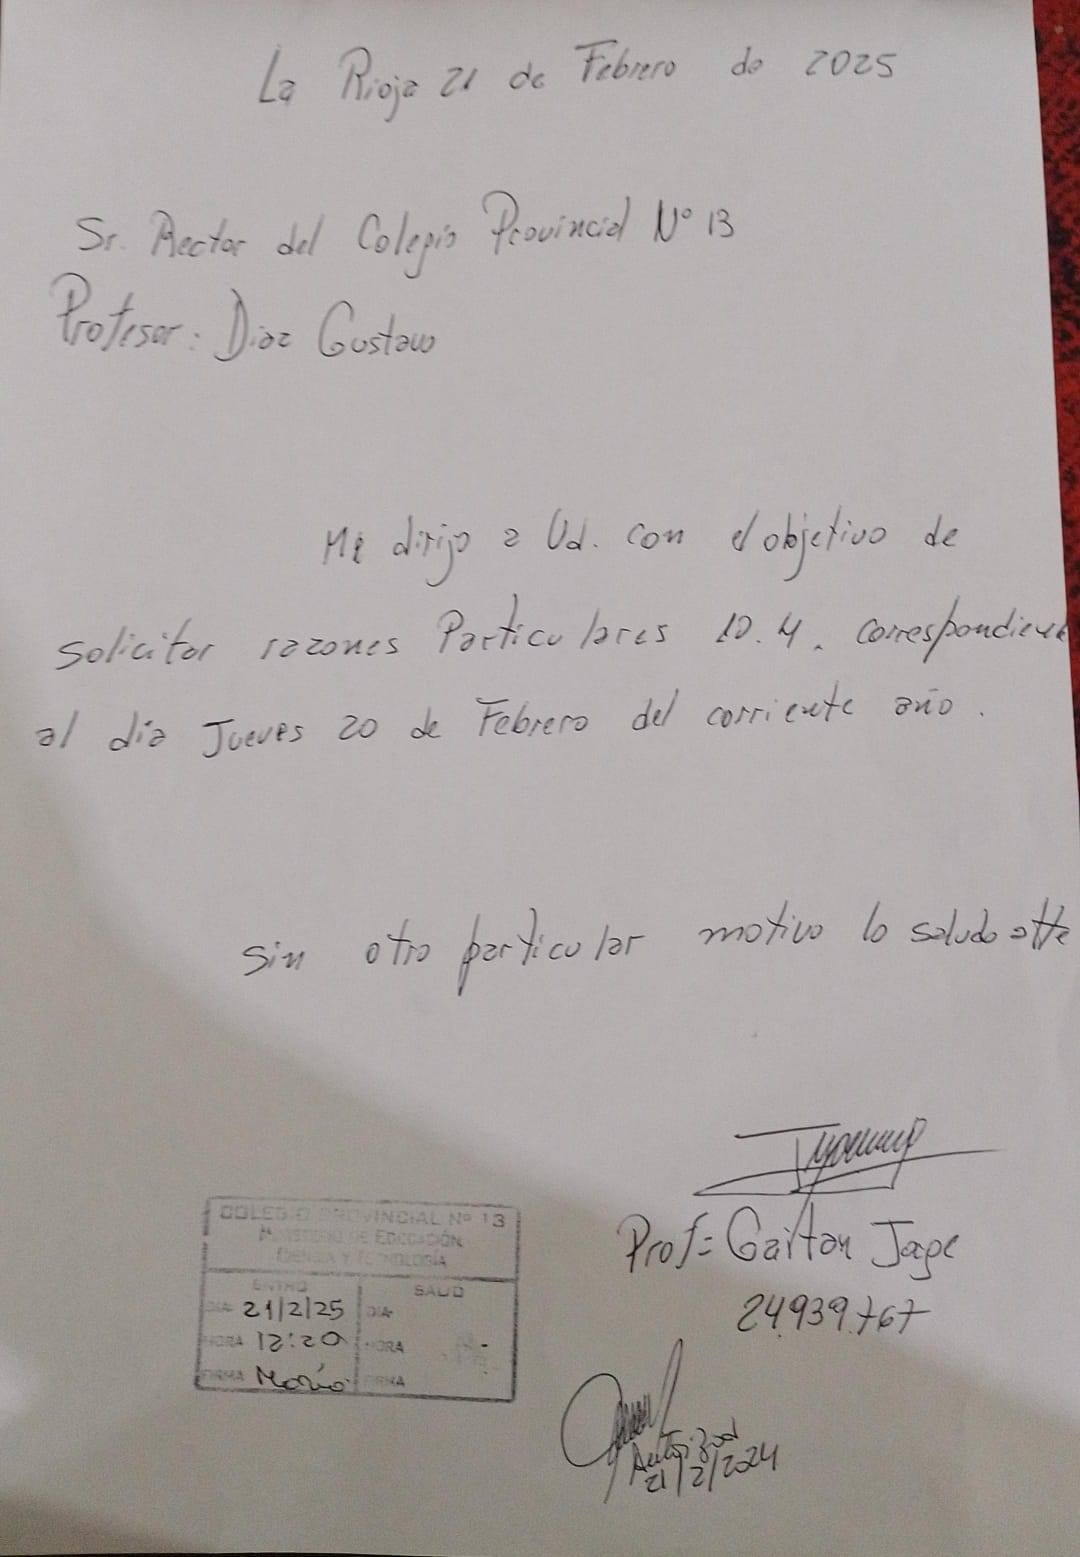 La Rioja 21 de Febrero de 2025
Sr. Rector del Colegio Provincial N° 13
Profesor: Diaz Gustavo
Me dirijo a Ud. con el objetivo de
solicitar razones Particulares 10.4. correspondiente
al dia Jueves 20 de Febrero del corriente año.
Sin otro particular motivo lo saludo atte
Prof: Gaitan Jage
24.939.767
COLEGIO PROVINCIAL Nº 13
MINISTERIO DE EDUCACIÓN
CIENCIA Y TECNOLOGÍA
ENTRO SALIO
DIA 21/2/25 DIA
HORA 12:20 HORA
FIRMA Mario FIRMA
21/2/2024